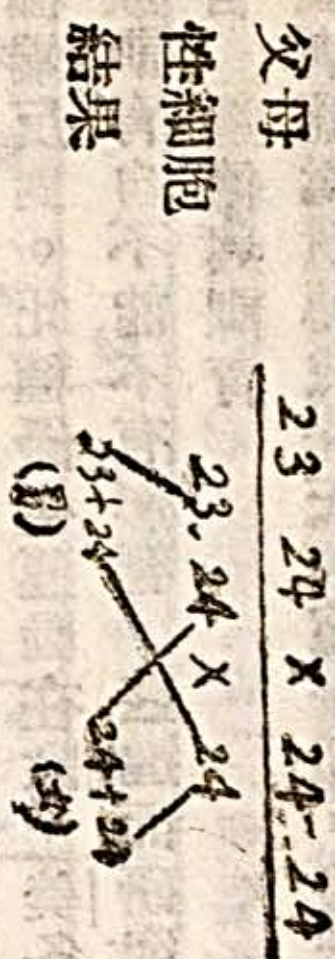 父母 23 24 × 24-24
性細胞 23-24 × 24
結果 23+24 24+24
(男) (女)